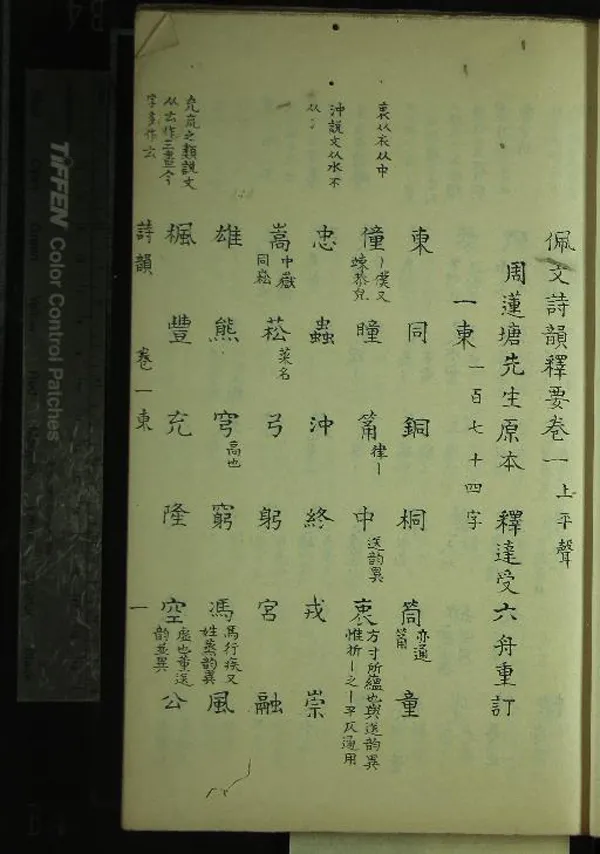 佩文詩韻釋要卷一 上平聲
周蓮塘先生原本 釋達受六舟重訂
一東 一百七十四字
東 同 銅 桐 筒亦通筩 童
僮丨僕又竦恭皃 瞳 筩律丨 中送韵異 衷方寸所蘊也與送韵異惟折丨之丨平仄通用
忠 蟲 沖 終 戎 崇
嵩中嶽同崧 菘菜名 弓 躬 宮 融
雄 熊 穹高也 窮 馮馬行疾又姓蒸韵異 風
楓 豐 充 隆 空虛也董送韵並異 公
詩韻 卷一東 一
衷从衣从中
沖說文从水不从冫
充㐬之類說文从𠫓作三畫今字多作
TIFFEN Color Control Patches